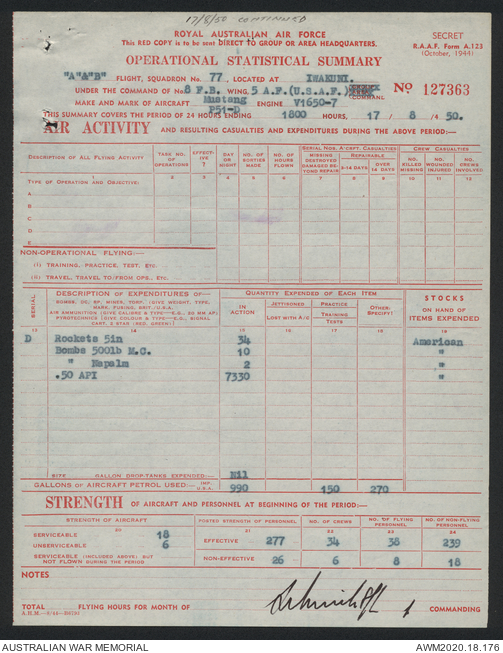 17/8/50 CONTINUED
ROYAL AUSTRALIAN AIR FORCE
This RED COPY is to be sent DIRECT to GROUP OR AREA HEADQUARTERS.
SECRET
R.A.A.F. Form A.123
(October, 1944)
OPERATIONAL STATISTICAL SUMMARY
"A"&"B" FLIGHT, SQUADRON No. 77, LOCATED AT IWAKUNI.
UNDER THE COMMAND OF No. 8 F.B. WING, 5 A.F.(U.S.A.F.) COMMAND.
No 127363
MAKE AND MARK OF AIRCRAFT Mustang P51-D ENGINE V1650-7
THIS SUMMARY COVERS THE PERIOD OF 24 HOURS ENDING 1800 HOURS, 17 / 8 /4 50.
AIR ACTIVITY AND RESULTING CASUALTIES AND EXPENDITURES DURING THE ABOVE PERIOD:—
DESCRIPTION OF ALL FLYING ACTIVITY
TASK NO. OF OPERATIONS
EFFECTIVE ?
DAY OR NIGHT
NO. OF SORTIES MADE
NO. OF HOURS FLOWN
SERIAL NOS. A'CRFT. CASUALTIES
MISSING DESTROYED DAMAGED BEYOND REPAIR
REPAIRABLE
OVER 14 DAYS
CREW CASUALTIES
NO. KILLED MISSING
NO. WOUNDED INJURED
NO. CREWS INVOLVED
1 2 3 4 5 6 7 8 9 10 11 12
TYPE OF OPERATION AND OBJECTIVE:
A
B
C
D
E
NON-OPERATIONAL FLYING:—
(I) TRAINING, PRACTICE, TEST, ETC.
(II) TRAVEL, TRAVEL TO/FROM OPS., ETC.
SERIAL
DESCRIPTION OF EXPENDITURES OF—
BOMBS, DC, SP, MINES, TORP. (GIVE WEIGHT, TYPE, MARK, FUSING, BRIT./U.S.A.
AIR AMMUNITION (GIVE CALIBRE & TYPE—E.G., 20 MM AP)
PYROTECHNICS (GIVE COLOUR & TYPE—E.G., SIGNAL CART. 2 STAR (RED, GREEN))
QUANTITY EXPENDED OF EACH ITEM
IN ACTION
JETTISONED
LOST WITH A/C
PRACTICE
TRAINING
TESTS
OTHER: SPECIFY:
STOCKS
ON HAND OF
ITEMS EXPENDED
13 14 15 16 17 18 19
D Rockets 5in 34 American
Bombs 500lb M.C. 10 "
" Napalm 2 "
.50 API 7330 "
SIZE GALLON DROP-TANKS EXPENDED:— Nil
GALLONS OF AIRCRAFT PETROL USED:— IMP. U.S.A. 990 150 270
STRENGTH OF AIRCRAFT AND PERSONNEL AT BEGINNING OF THE PERIOD:—
STRENGTH OF AIRCRAFT
POSTED STRENGTH OF PERSONNEL
NO. OF CREWS
NO. OF FLYING PERSONNEL
NO. OF NON-FLYING PERSONNEL
20 21 22 23 24
SERVICEABLE 18 EFFECTIVE 277 34 38 239
UNSERVICEABLE 6
SERVICEABLE (INCLUDED ABOVE) BUT NOT FLOWN DURING THE PERIOD
NON-EFFECTIVE 26 6 8 18
NOTES
TOTAL FLYING HOURS FOR MONTH OF
COMMANDING
AUSTRALIAN WAR MEMORIAL
AWM2020.18.176